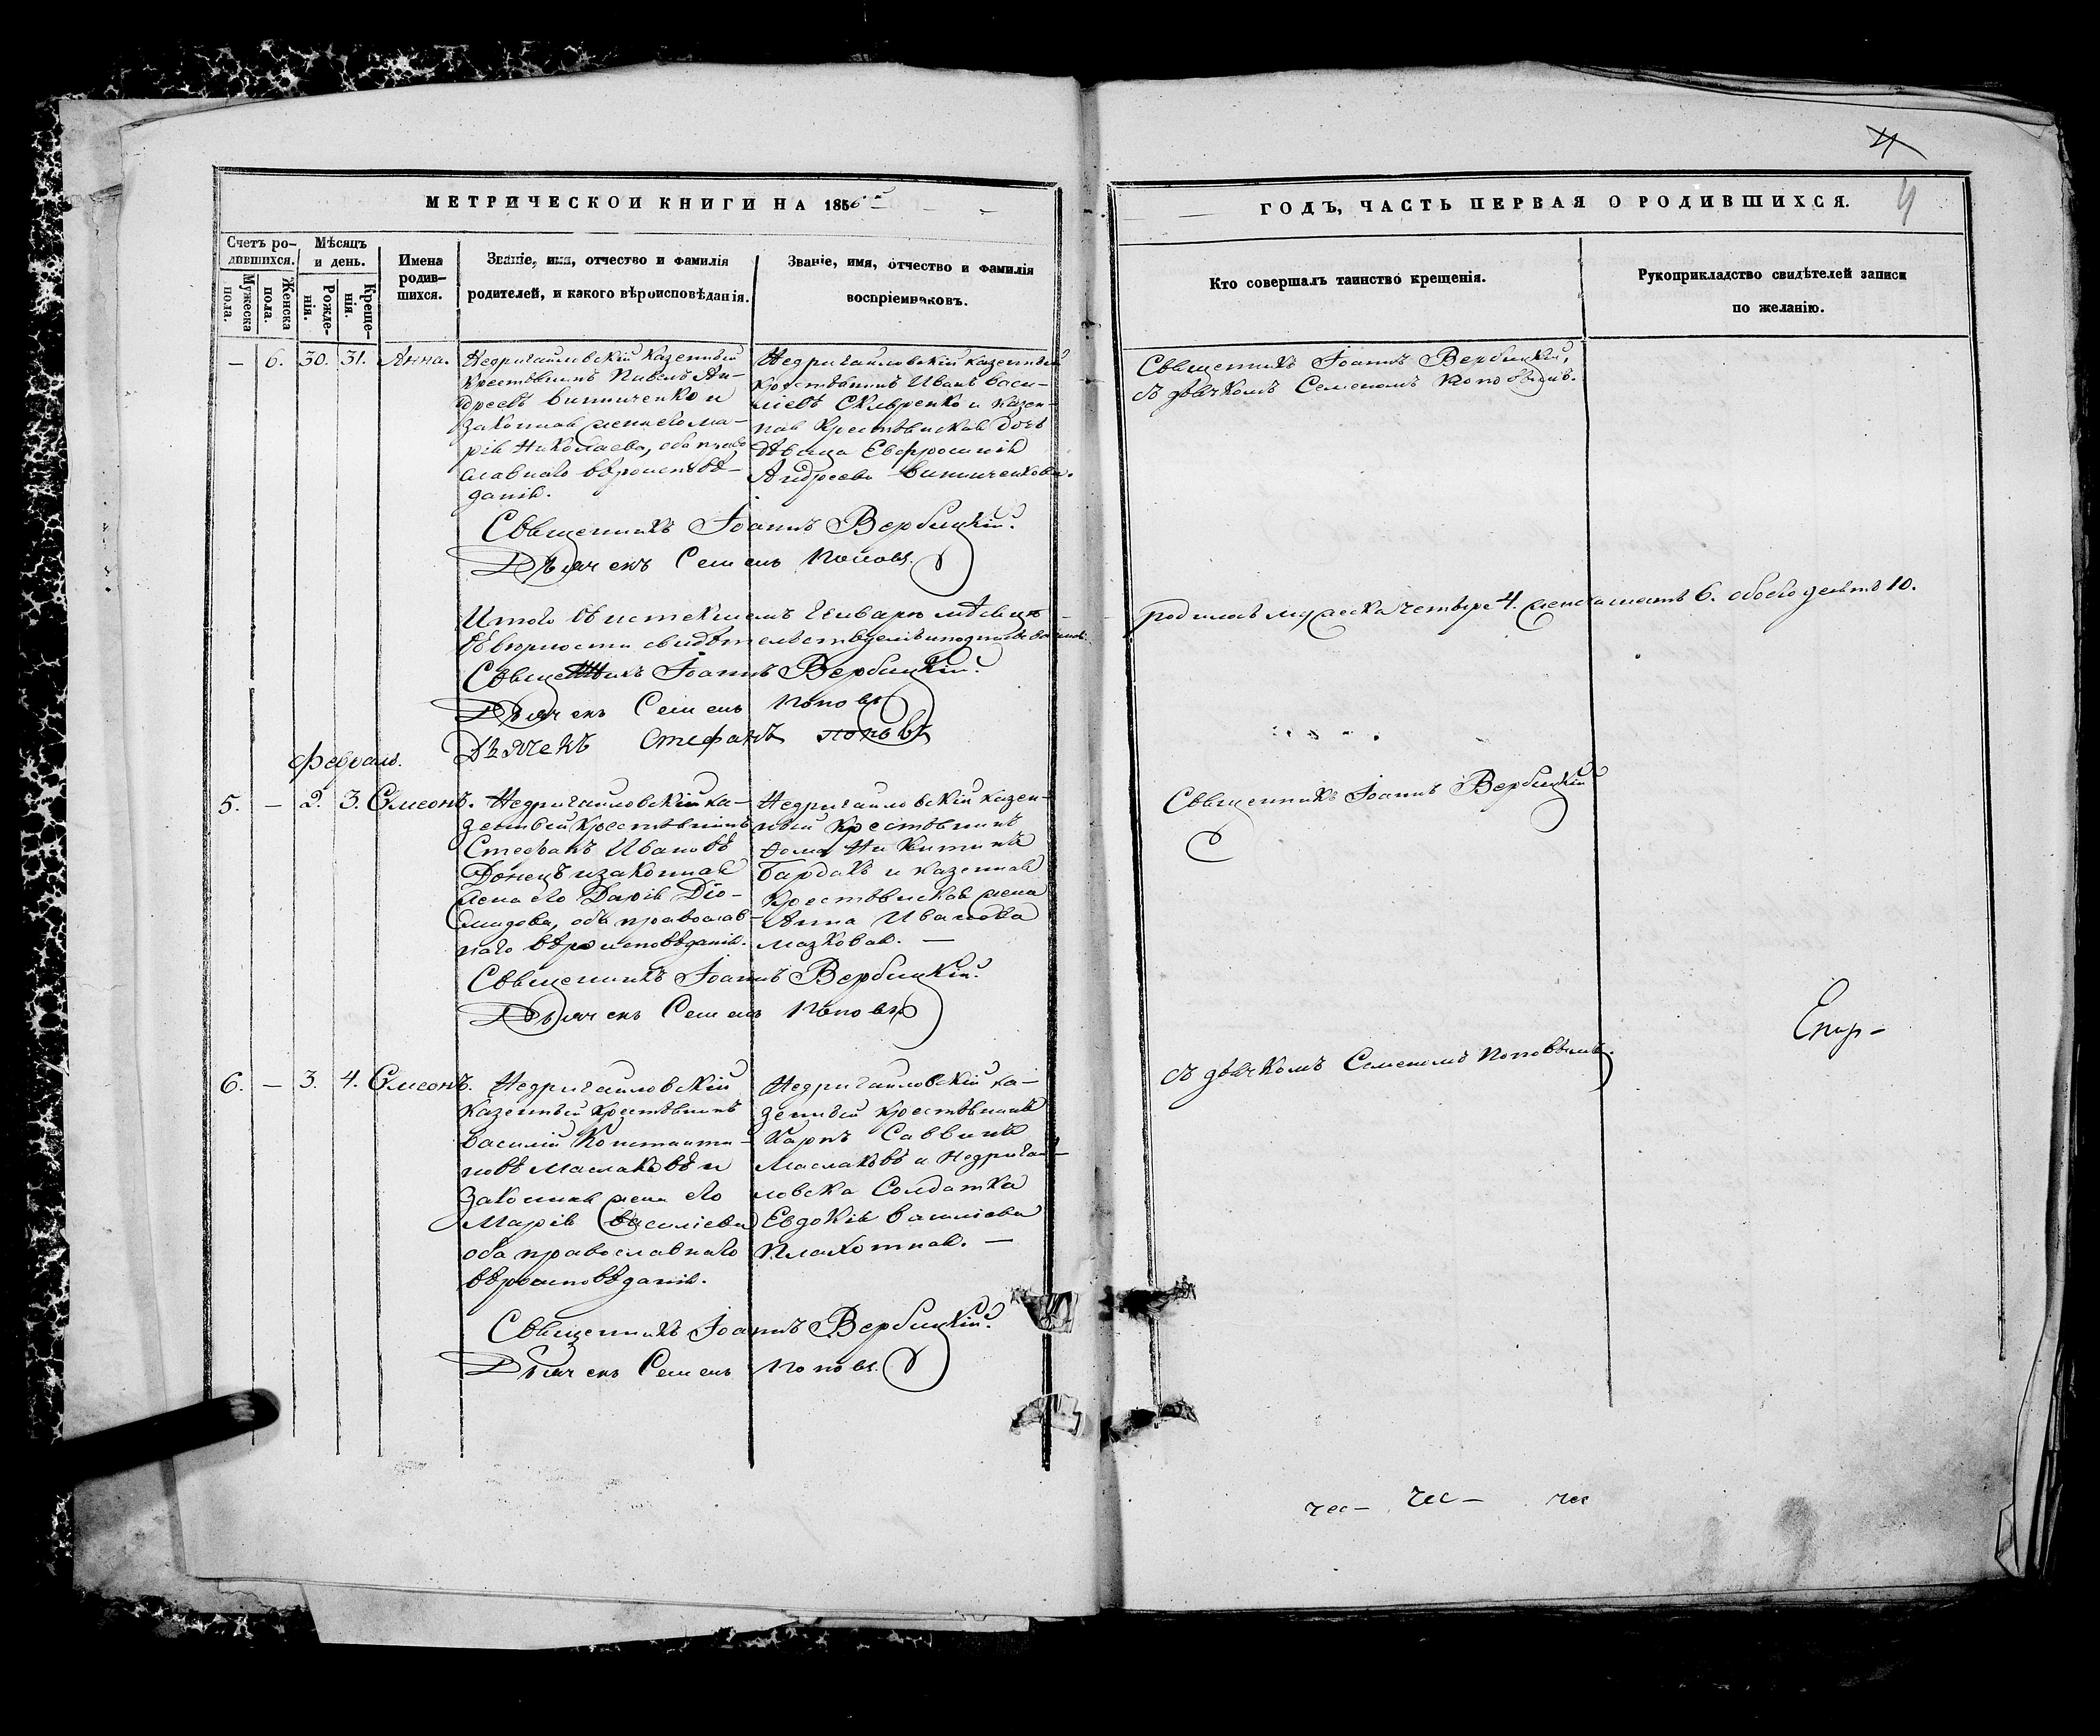 МЕТРИЧЕСКОИ КНИГИ НА 1856й
ГОДЪ, ЧАСТЬ ПЕРВАЯ О РОДИВШИХСЯ.
4
4
Счетъ родившихся.
Мужеска пола.
Женска пола.
Мѣсяцъ и день.
Рожденія.
Крещенія.
Имена родившихся.
Званіе, имя, отчество и фамилія
родителей, и какого вѣроисповѣданія.
Званіе, имя, отчество и фамилія
воспріемниковъ.
Кто совершалъ таинство крещенія.
Рукоприкладство свидѣтелей записи
по желанію.
— 6. 30. 31. Анна.
Недригайловскій Казенный
Крестьянинъ Павелъ Ан-
дреевъ Винниченко и
законная жена его Ма-
рія Николаева, оба право
славнаго вѣроисповѣ-
данія.
Недригайловскій казенный
Крестьянинъ Иванъ Васи-
ліевъ Скляренко и казен-
ная Крестьянская дочь
дѣвица Евфросинія
Андреева Винниченкова.
Священникъ Іоаннъ Вербицкій,
съ дьячкомъ Семеномъ Поповымъ.
Священникъ Іоаннъ Вербицкій.
Дьячекъ Семенъ Поповъ.
Итого въ истекшемъ Генварѣ мѣсяцѣ
родилось мужеска четыре 4. женска шесть 6. обоего десять 10.
Въ вѣрности свидѣтельствуемъ и подписываемся
Священникъ Іоаннъ Вербицкій.
Дьячекъ Семенъ Поповъ
Дьячекъ Стефанъ Поповъ
Февраль.
5. — 2. 3. Симеонъ.
Недригайловскій ка-
зенный Крестьянинъ
Стефанъ Ивановъ
Донецъ и законная
жена его Дарія Діо-
мидова, оба православ-
наго вѣроисповѣданія.
Недригайловскій казен-
ный Крестьянинъ
Фома Никитинъ
Бардакъ и казенная
Крестьянская жена
Анна Иванова
Мазковая. —
Священникъ Іоаннъ Вербицкій
Священникъ Іоаннъ Вербицкій.
Дьячекъ Семенъ Поповъ
6. — 3. 4. Симеонъ.
Недригайловскій
Казенный Крестьянинъ
Василій Константи-
новъ Маслаковъ и
Законная жена его
Марія Василіева
оба православнаго
вѣроисповѣданія.
Недригайловскій ка-
зенный крестьянинъ
Карпъ Саввинъ
Маслаковъ и Недригай-
ловска Солдатка
Евдокія Василіева
Плахотная. —
съ дьячкомъ Семеномъ Поповымъ.
Священникъ Іоаннъ Вербицкій.
Дьячекъ Семенъ Поповъ.